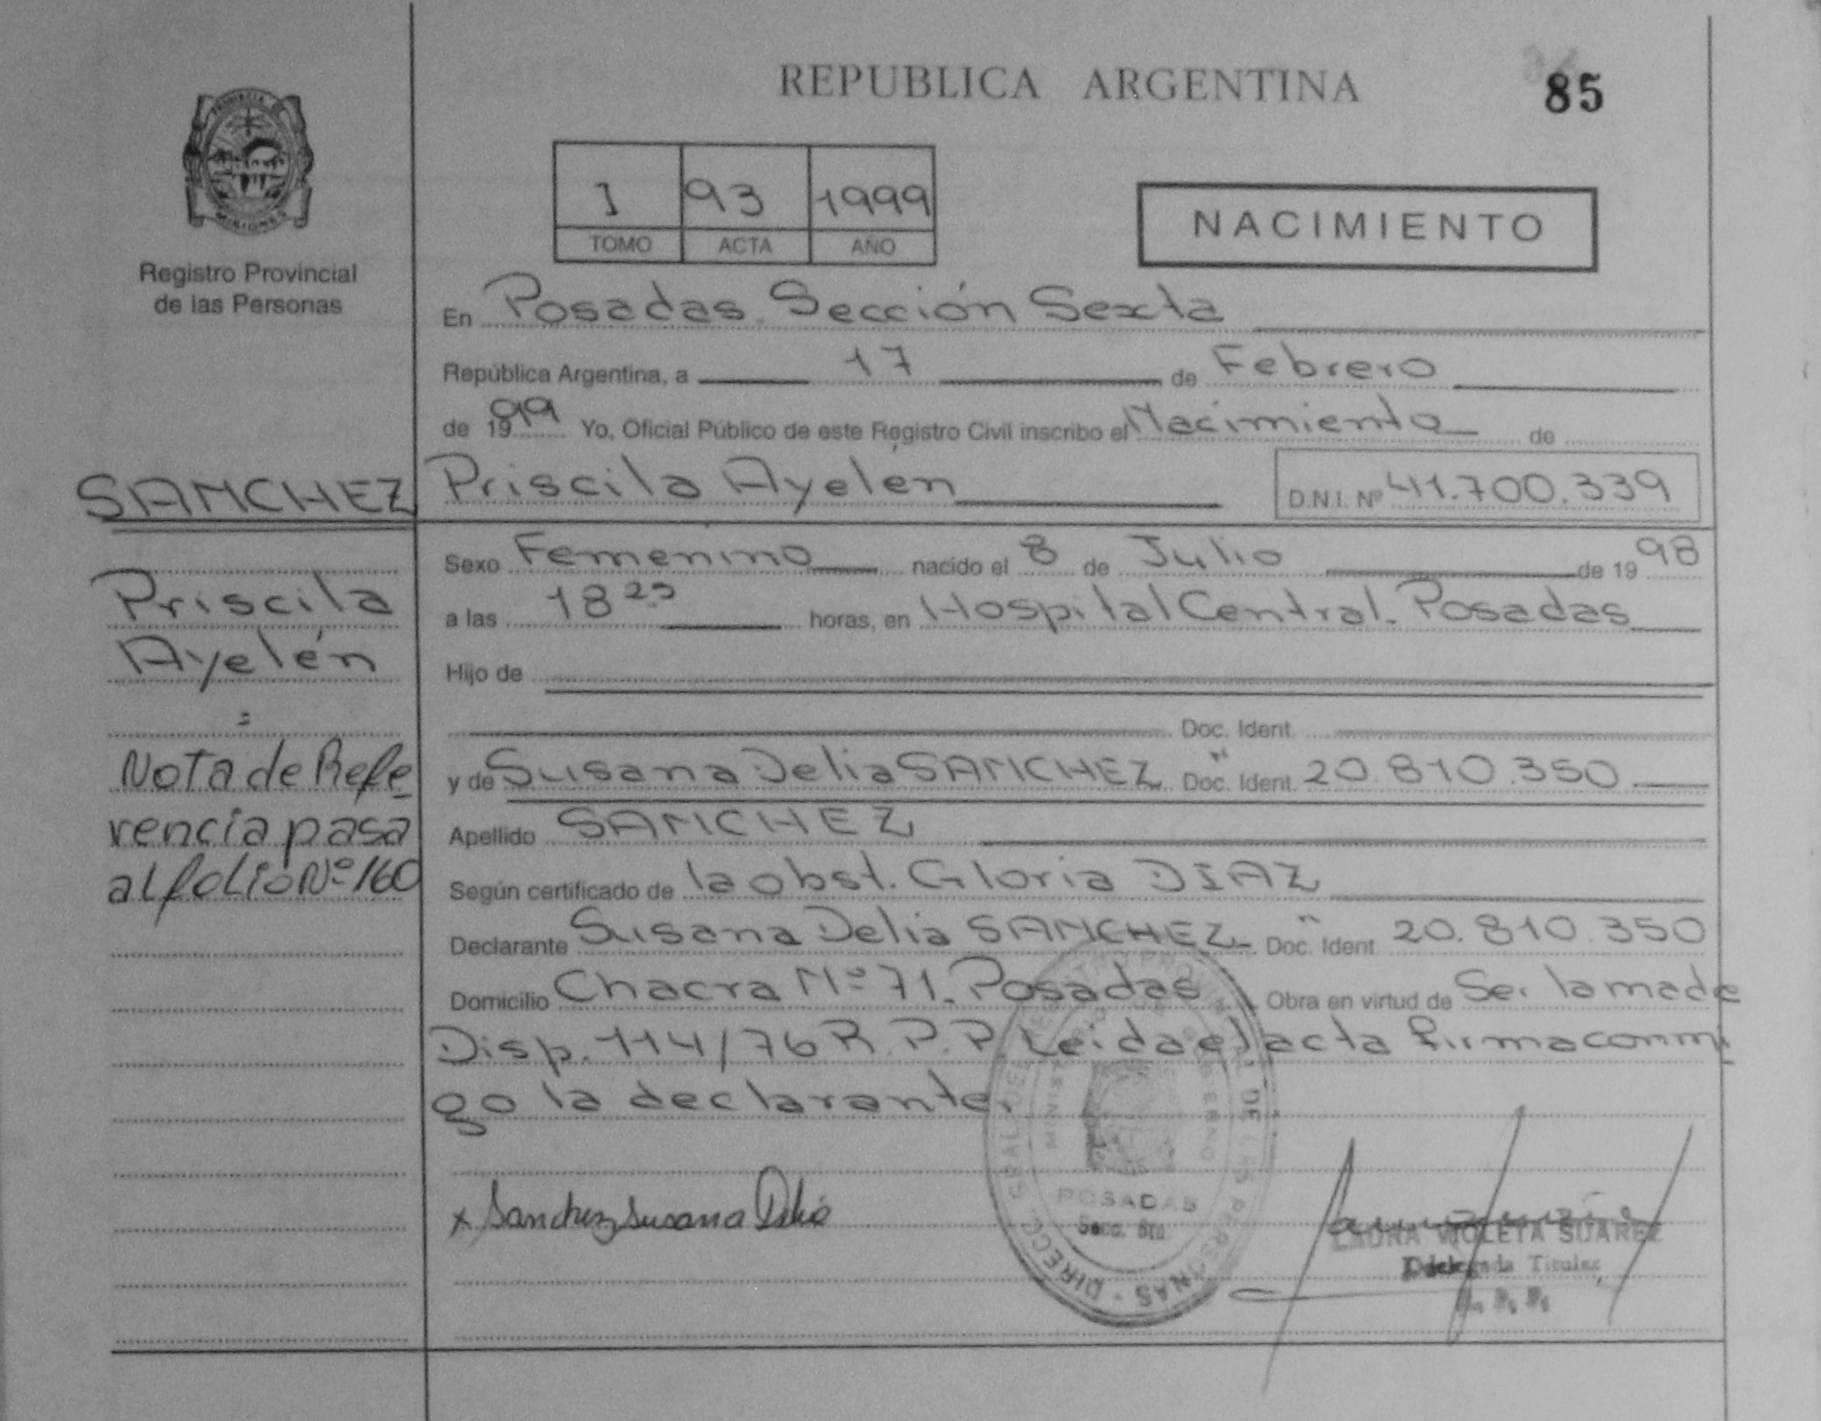 REPUBLICA ARGENTINA
85
PROVINCIA
MISIONES
Registro Provincial
de las Personas
I 93 1999
TOMO ACTA AÑO
NACIMIENTO
En Posadas. Sección Sexta
República Argentina, a 17 de Febrero
de 1999 Yo, Oficial Público de este Registro Civil inscribo el Nacimiento de
SANCHEZ Priscila Ayelen D.N.I. Nº 41.700.339
Sexo Femenino nacido el 8 de Julio de 1998
Priscila
a las 18 25 horas, en Hospital Central. Posadas
Ayelén
Hijo de
Doc. Ident.
Nota de Refe
y de Susana Delia SANCHEZ Doc. Ident. 20.810.350
rencia pasa
Apellido SANCHEZ
al folio Nº 160
Según certificado de la obst. Gloria DIAZ
Declarante Susana Delia SANCHEZ Doc. Ident. 20.810.350
Domicilio Chacra Nº 71. Posadas Obra en virtud de Ser la madre
Disp. 114/76 R.P.P. Leida el acta firma conmi
go la declarante.
DIRECC. GRAL. DEL REGISTRO PROVINCIAL DE LAS PERSONAS
POSADAS
Secc. 6ta.
x Sanchez Susana Delia
LAURA VIOLETA SUAREZ
Delegada Titular